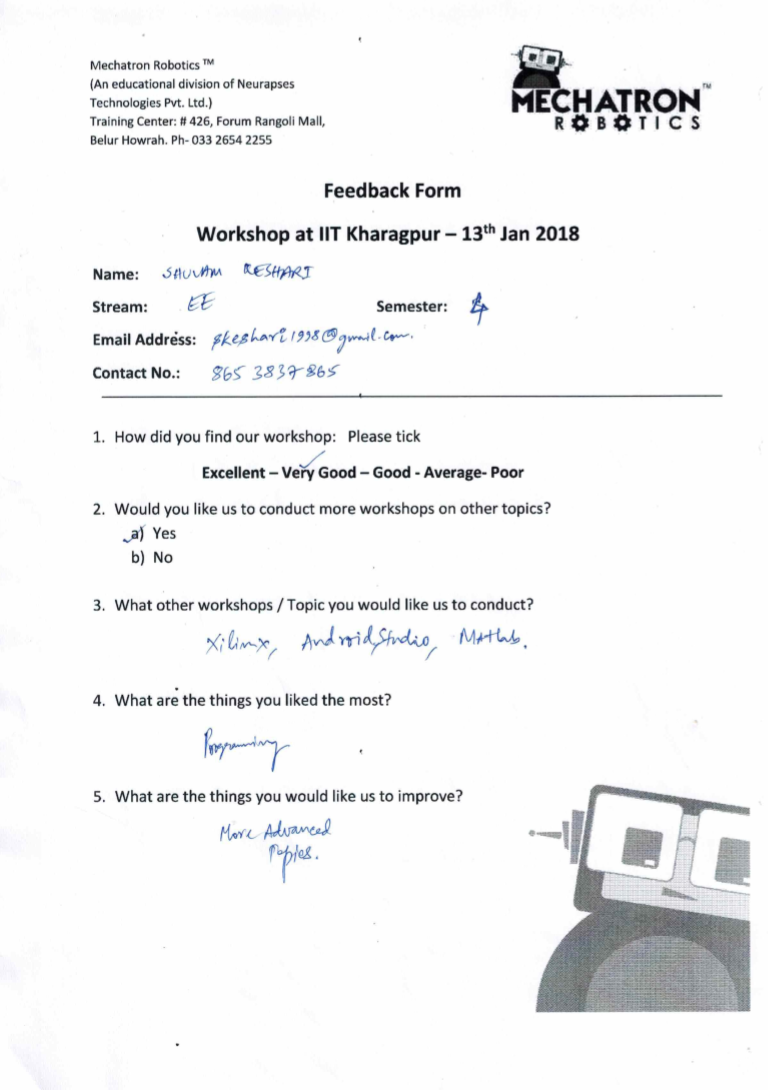 Mechatron Robotics ™
(An educational division of Neurapses
Technologies Pvt. Ltd.)
Training Center: # 426, Forum Rangoli Mall,
Belur Howrah. Ph- 033 2654 2255
MECHATRON™
ROBOTICS
Feedback Form
Workshop at IIT Kharagpur – 13th Jan 2018
Name: KESHARI
Stream: EE Semester: 4
Email Address: skeshari1998@gmail.com.
Contact No.: 865 3837865
1. How did you find our workshop: Please tick
Excellent – Very Good – Good - Average- Poor
2. Would you like us to conduct more workshops on other topics?
a) Yes
b) No
3. What other workshops / Topic you would like us to conduct?
Xilinx, Android Studio, Matlab.
4. What are the things you liked the most?
Programming
5. What are the things you would like us to improve?
More Advanced
Topics.